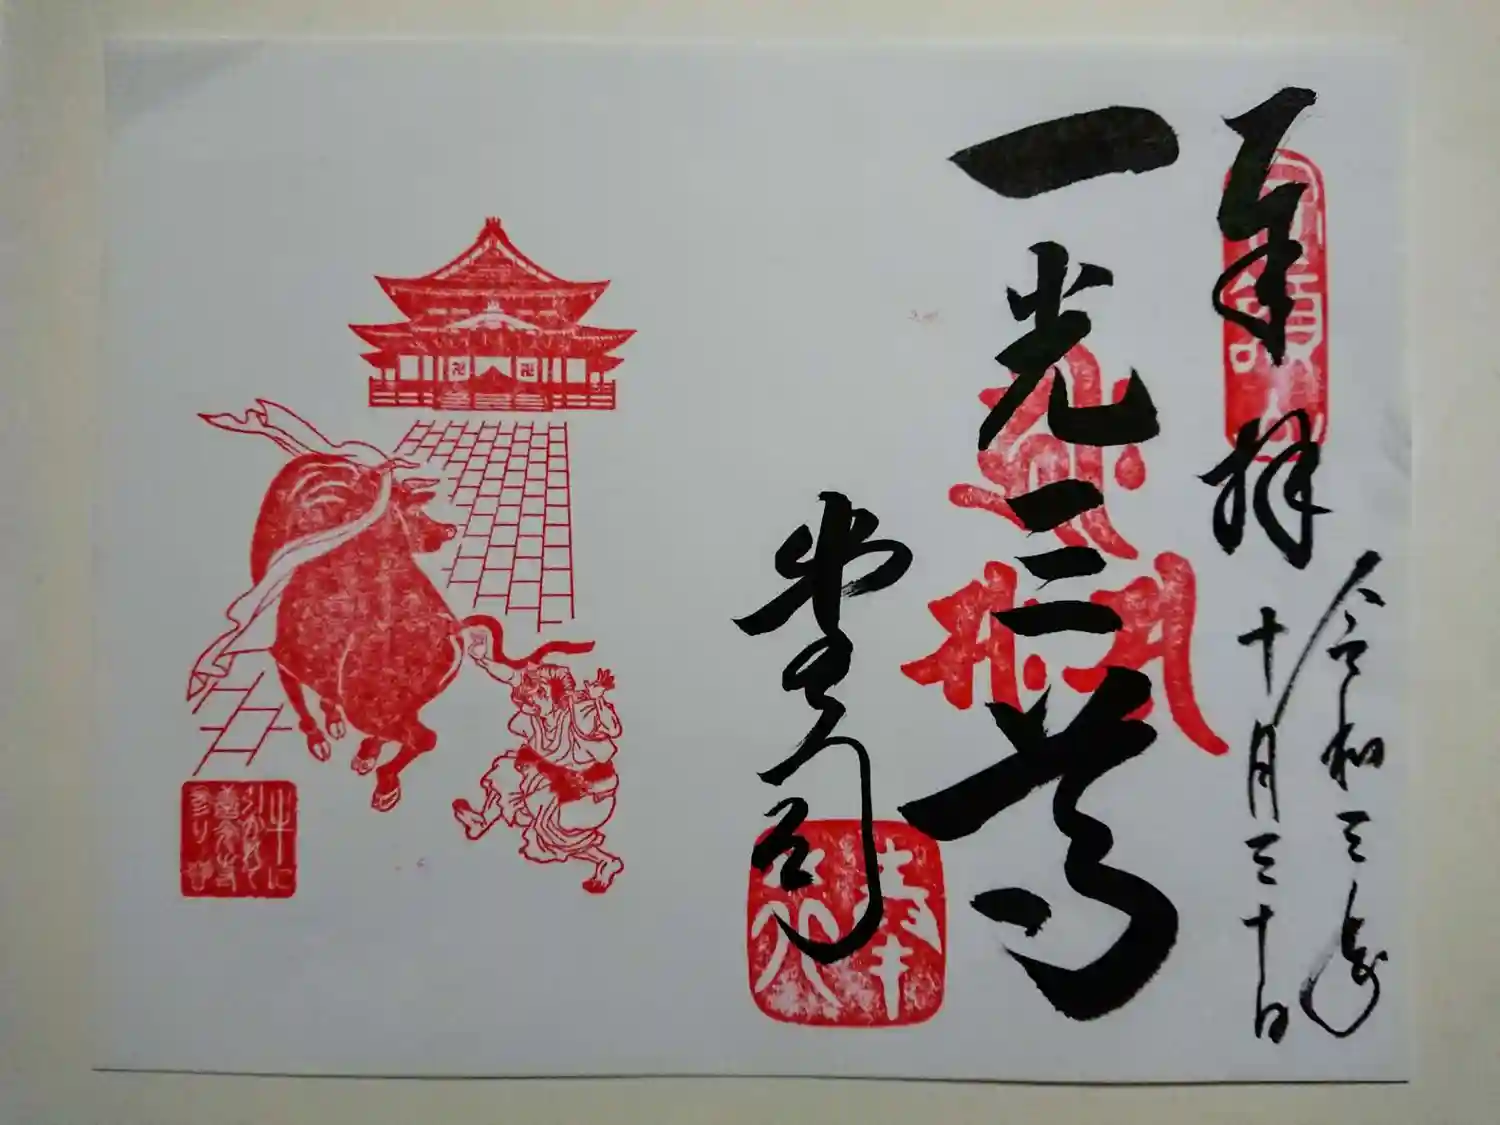 奉拝
令和三歳
十月三十日
一光三尊
堂司
牛に
ひかれて
善光寺
参り